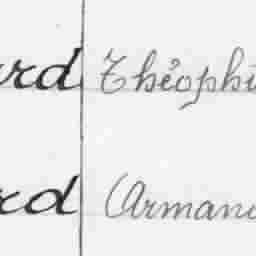 ard Théophi
rd Armand